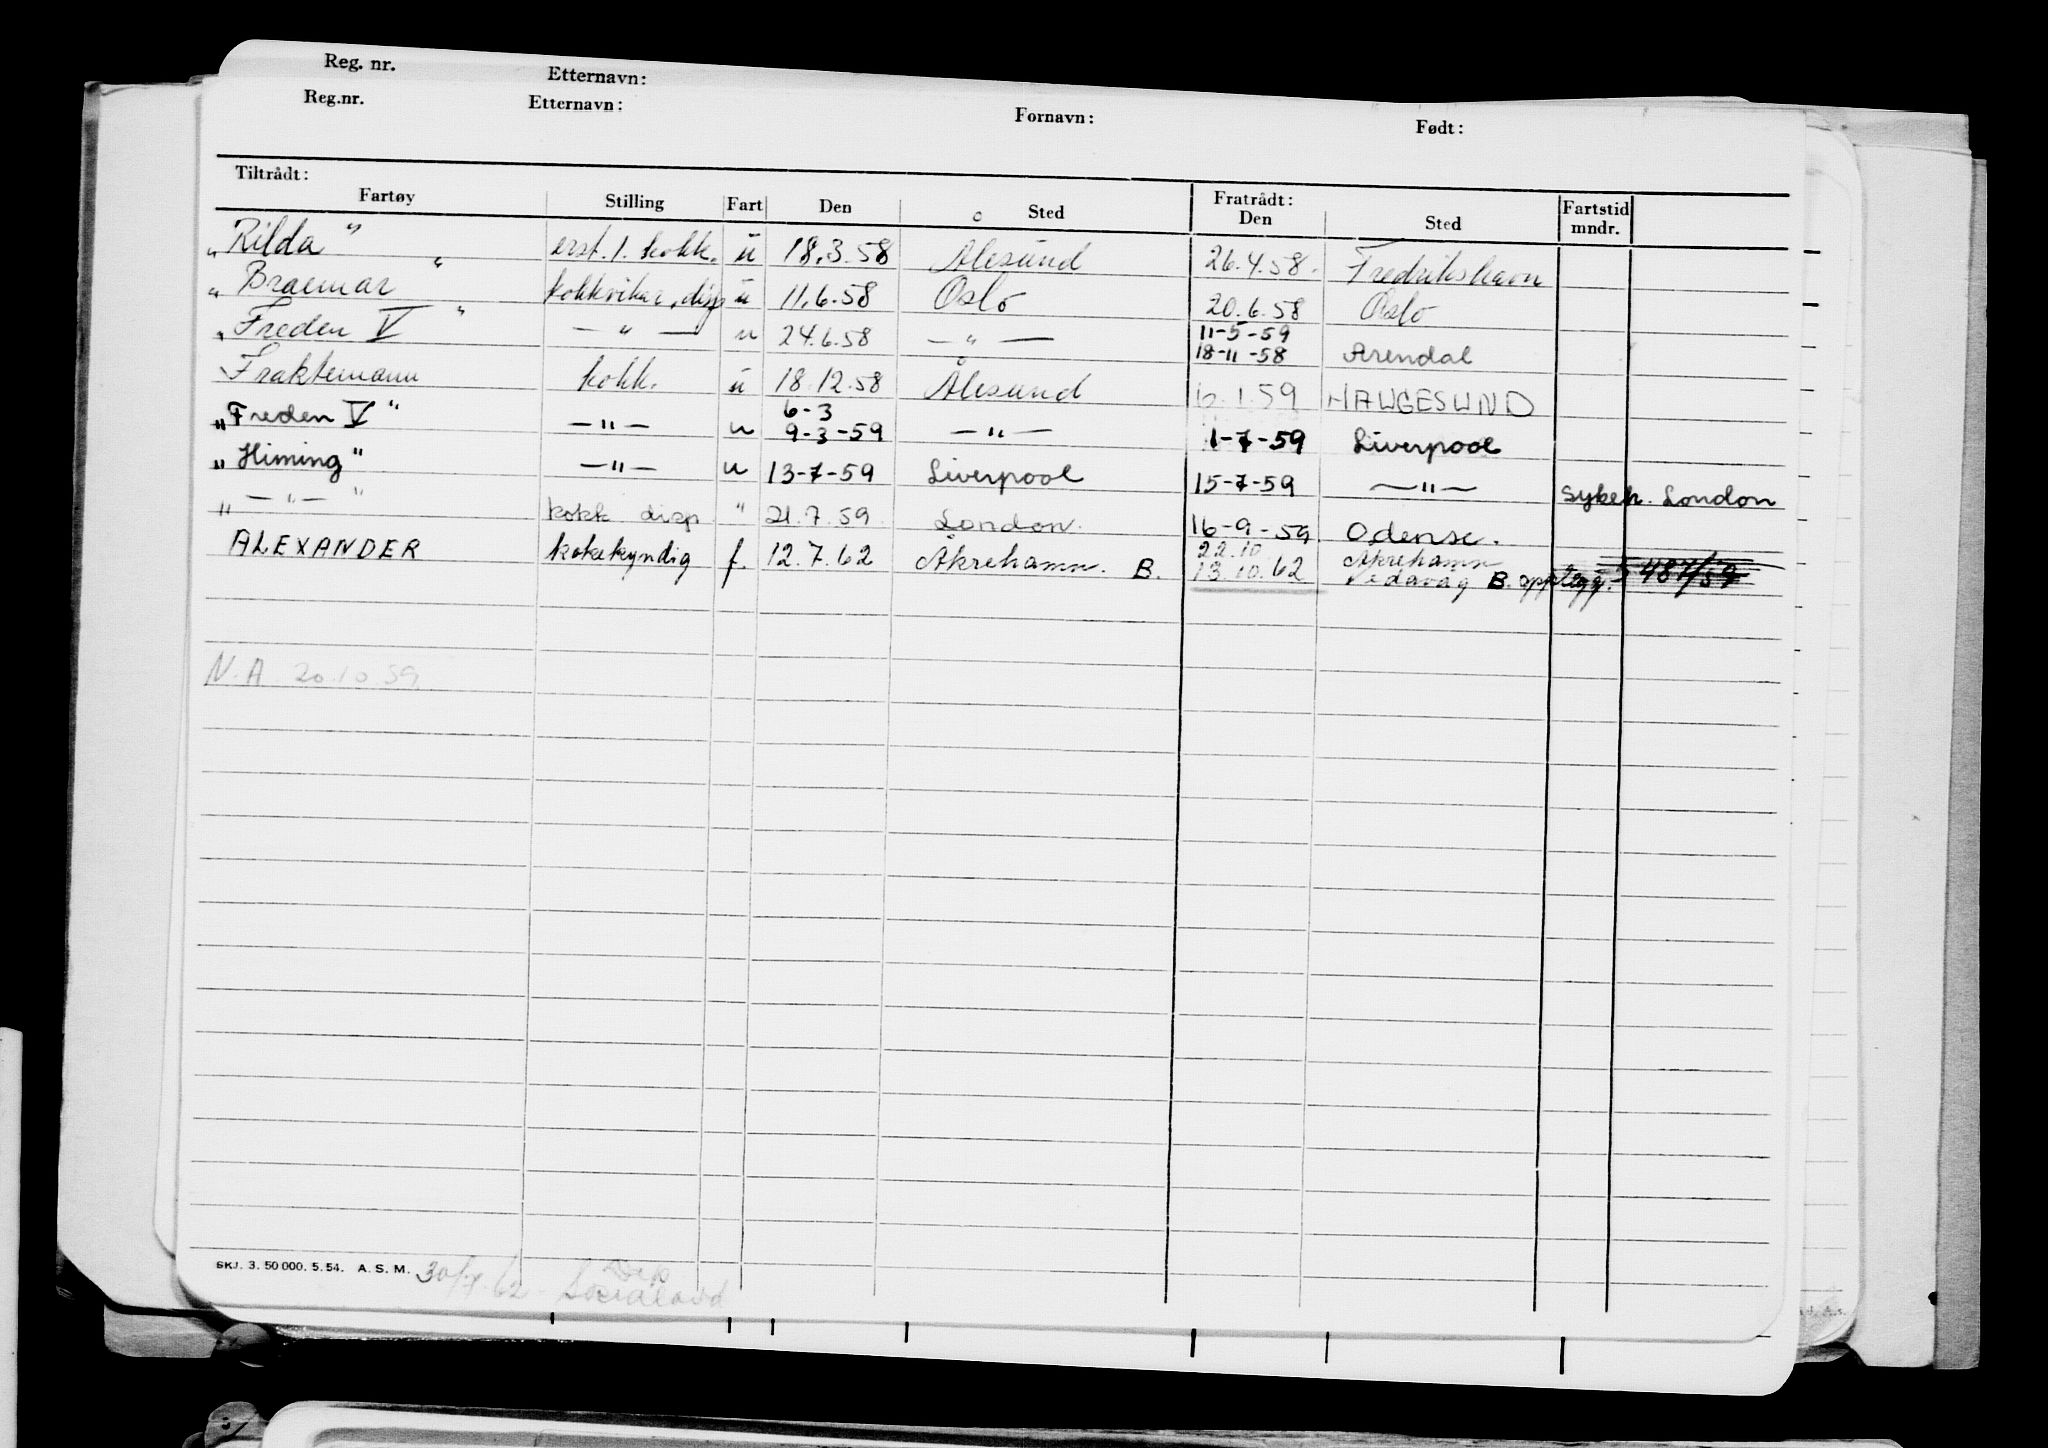 Reg. nr. Etternavn:
Reg.nr. Etternavn: Fornavn: Født:
Tiltrådt: Fratrådt:
Fartøy Stilling Fart Den Sted Den Sted Fartstid mndr.
„Rilda" erst. 1. kokk. u 18.3.58 Ålesund 26.4.58. Fredrikshavn
„Braemar" kokkvikar, disp u 11.6.58 Oslo 20.6.58 Oslo
„Freden V" — " — u 24.6.58 — " — 11-5-59 18-11-58 Arendal
Fraktemann kokk. u 18.12.58 Ålesund 6.1.59 HAUGESUND
„Freden V" — " — u 6-3 9-3-59 — " — 1-7-59 Liverpool
„Himing" — " — u 13-7-59 Liverpool 15-7-59 — " — sykeh. London
„ — " — " kokk disp " 21.7.59. London. 16-9-59 Odense.
ALEXANDER kokekyndig f. 12.7.62 Åkrehamn. B. 22.10 13.10.62 Åkrehamn Vedavåg B. opplegg. 487/59
N.A. 20.10.59
SKJ. 3. 50 000. 5. 54. A. S. M.